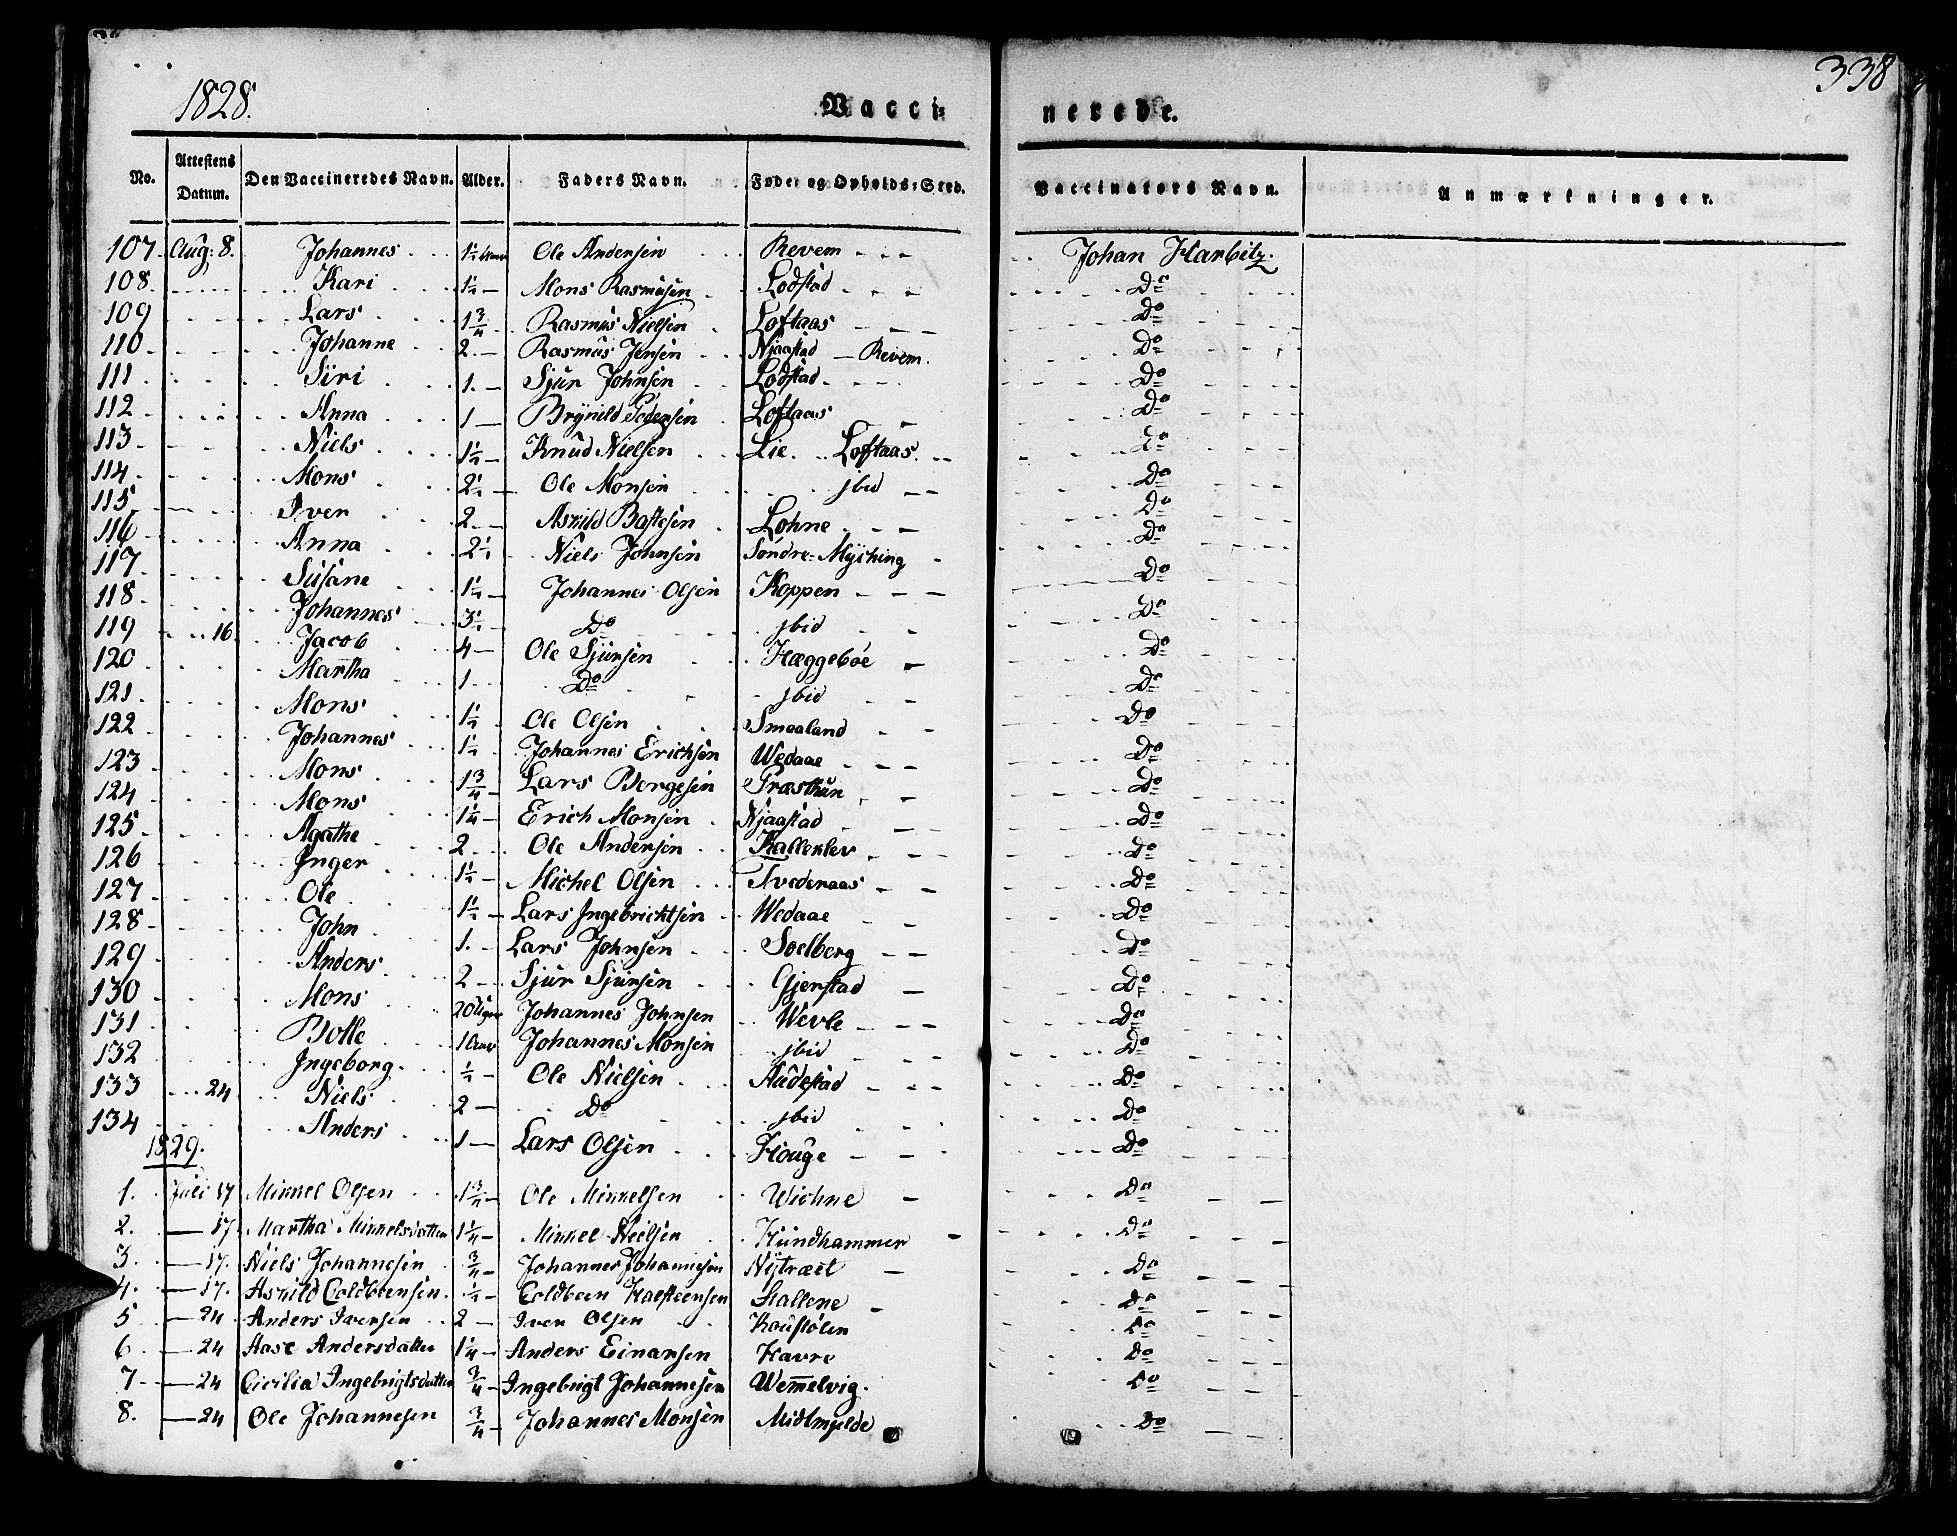 1828. Vacci- nerede. 338
No. Attestens Datum. Den Vaccineredes Navn. Alder. Faders Navn. Føde- og Opholds-Sted. Vaccinators Navn. Anmærkninger.
107. Aug: 8. Johannes 1½ Ole Andersen Revem Johan Harbitz.
108. Kari 1½ Mons Rasmusen Lodstad Do
109 Lars 1¾ Rasmus Nielsen Loftaas Do
110 Johanne 2. Rasmus Jensen Njaastad - Revem. Do
111 Siri 1. Sjur Johnsen Lodstad Do
112 Anna 1 Brynild Pedersen Loftaas Do
113 Niels 1½ Knud Nielsen Lie. Loftaas. Do
114 Mons 2½ Ole Monsen jbid Do
115 Iver 2. Askild Bastesen Lohne Do
116 Anna 2½ Niels Johnsen Søndre-Mycking Do
117 Susane 1½ Johannes Olsen Koppen Do
118 Johannes 3½ Do jbid Do
119 16 Jacob 4 Ole Sjursen Hæggebøe Do
120 Martha 1 Do jbid Do
121 Mons 1½ Ole Olsen Smaaland Do
122 Johannes 1½ Johannes Erichsen Wedaae Do
123 Mons 1¾ Lars Borgesen Træsthun Do
124 Mons 1¼ Erich Monsen Njaastad Do
125 Agathe 2 Ole Andersen Kalleklev Do
126 Inger 1½ Michel Olsen Tvedenaas Do
127 Ole 1½ Lars Ingebrichtsen Wedaae Do
128 John 1. Lars Johnsen Soelberg Do
129 Anders 2 Sjur Sjursen Gjerstad Do
130 Mons 20 Uger Johannes Johnsen Wevle Do
131 Botle 1 Johannes Monsen jbid Do
132 Ingeborg. ½ Ole Nielsen Aadestad Do
133 24 Niels 2 Do jbid Do
134 Anders 1 Lars Olsen Houge Do
1829.
1. Juli 17 Mikkel Olsen 1¾ Ole Mikkelsen Wichne Do
2. 17. Martha Mikkelsdatter 1¼ Mikkel Nielsen Hundhammer Do
3. 17. Niels Johannesen ¾ Johannes Johannesen Nytræet Do
4. 17. Askild Coldbeensen ½ Coldbeen Halsteensen Hallene Do
5 24 Anders Iversen 2 Iver Olsen Koustølen Do
6. 24 Aase Andersdatter 1¼ Anders Einarsen Havre Do
7 24 Cicilia Ingebrigtsdatter ¾ Ingebrigt Johannesen Wemmelvig. Do
8. 24 Ole Johannesen ¾ Johannes Monsen Midtmjelde Do